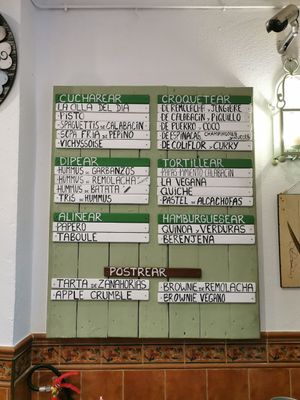 CUCHAREAR
LA OLLA DEL DIA
PISTO
SPAGUETTIS DE CALABACIN
SOPA FRIA DE PEPINO
VICHYSSOISE
DIPEAR
HUMMUS DE GARBANZOS
HUMMUS DE REMOLACHA
HUMMUS DE BATATA
TRIS DE HUMMUS
ALIÑEAR
PAPERO
TABOULE
CROQUETEAR
DE REMOLACHA, JENGIBRE
DE CALABACIN, PIQUILLO
DE PUERRO, COCO
DE ESPINACAS CHAMPIÑONES
DE COLIFLOR, CURRY
TORTILLEAR
PAPAS PIMIENTO CALABACIN
LA VEGANA
QUICHE
PASTEL DE ALCACHOFAS
HAMBURGUESEAR
QUINOA, VERDURAS
BERENJENA
POSTREAR
TARTA DE ZANAHORIAS
APPLE CRUMBLE
BROWNIE DE REMOLACHA
BROWNIE VEGANO